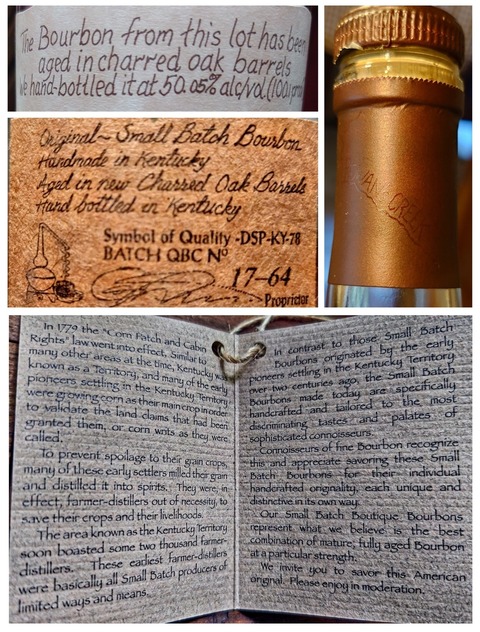 The Bourbon from this lot has been
aged in charred oak barrels
We hand-bottled it at 50.05% alc/vol (100.1 proof
Original~Small Batch Bourbon
Handmade in Kentucky
Aged in new Charred Oak Barrels
Hand bottled in Kentucky
Symbol of Quality -DSP-KY-78
BATCH QBC Nº
17-64
Proprietor
In 1779 the "Corn Patch and Cabin
Rights" law went into effect. Similar to
many other areas at the time, Kentucky was
known as a Territory, and many of the early
pioneers settling in the Kentucky Territory
were growing corn as their main crop in order
to validate the land claims that had been
granted them, or corn wnts as they were
called.
To prevent spoilage to their grain crops,
many of these early settlers milled their grain
and distilled it into spirits. They were, in
effect, farmer-distillers out of necessity, to
save their crops and their livelihoods.
The area known as the Kentucky Territory
soon boasted some two thousand farmer-
distillers. These earliest farmer-distillers
were basically all Small Batch producers of
limited ways and means.
In contrast to those Small Batch
Bourbons originated by the early
pioneers settling in the Kentucky Territory
over two centuries ago, the Small Batch
Bourbons made today are specifically
handcrafted and tailored to the most
discriminating tastes and palates of
sophisticated connoisseurs.
Connoisseurs of fine Bourbon recognize
this and appreciate savoring these Small
Batch Bourbons for their individual
handcrafted originality, each unique and
distinctive in its own way.
Our Small Batch Boutique Bourbons
represent what we believe is the best
combination of mature, fully aged Bourbon
at a particular strength.
We invite you to savor this American
original. Please enjoy in moderation.